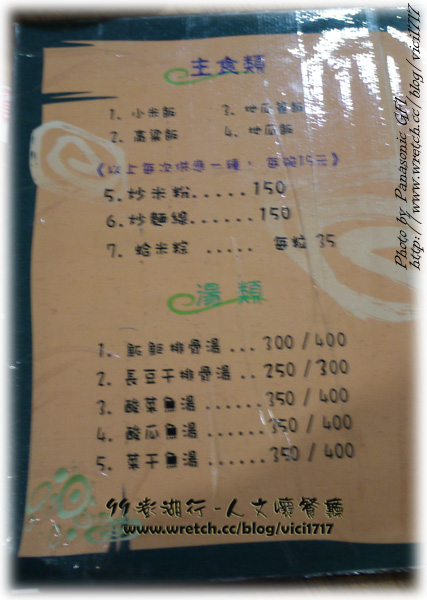 主食類
1. 小米飯 3. 地瓜簽飯
2. 高粱飯 4. 地瓜飯
《以上每次供應一種, 每碗15元》
5. 炒米粉......150
6. 炒麵線......150
7. 蛤米粽 ..... 每粒 35
湯類
1. 魟魠排骨湯 ... 300 / 400
2. 長豆干排骨湯 .. 250 / 300
3. 酸菜魚湯 ......350 / 400
4. 酸瓜魚湯 ......350 / 400
5. 菜干魚湯 .......350 / 400
99澎湖行-人文懷餐廳
www.wretch.cc/blog/vici1717
Photo by Panasonic GF1
http://www.wretch.cc/blog/vici1717